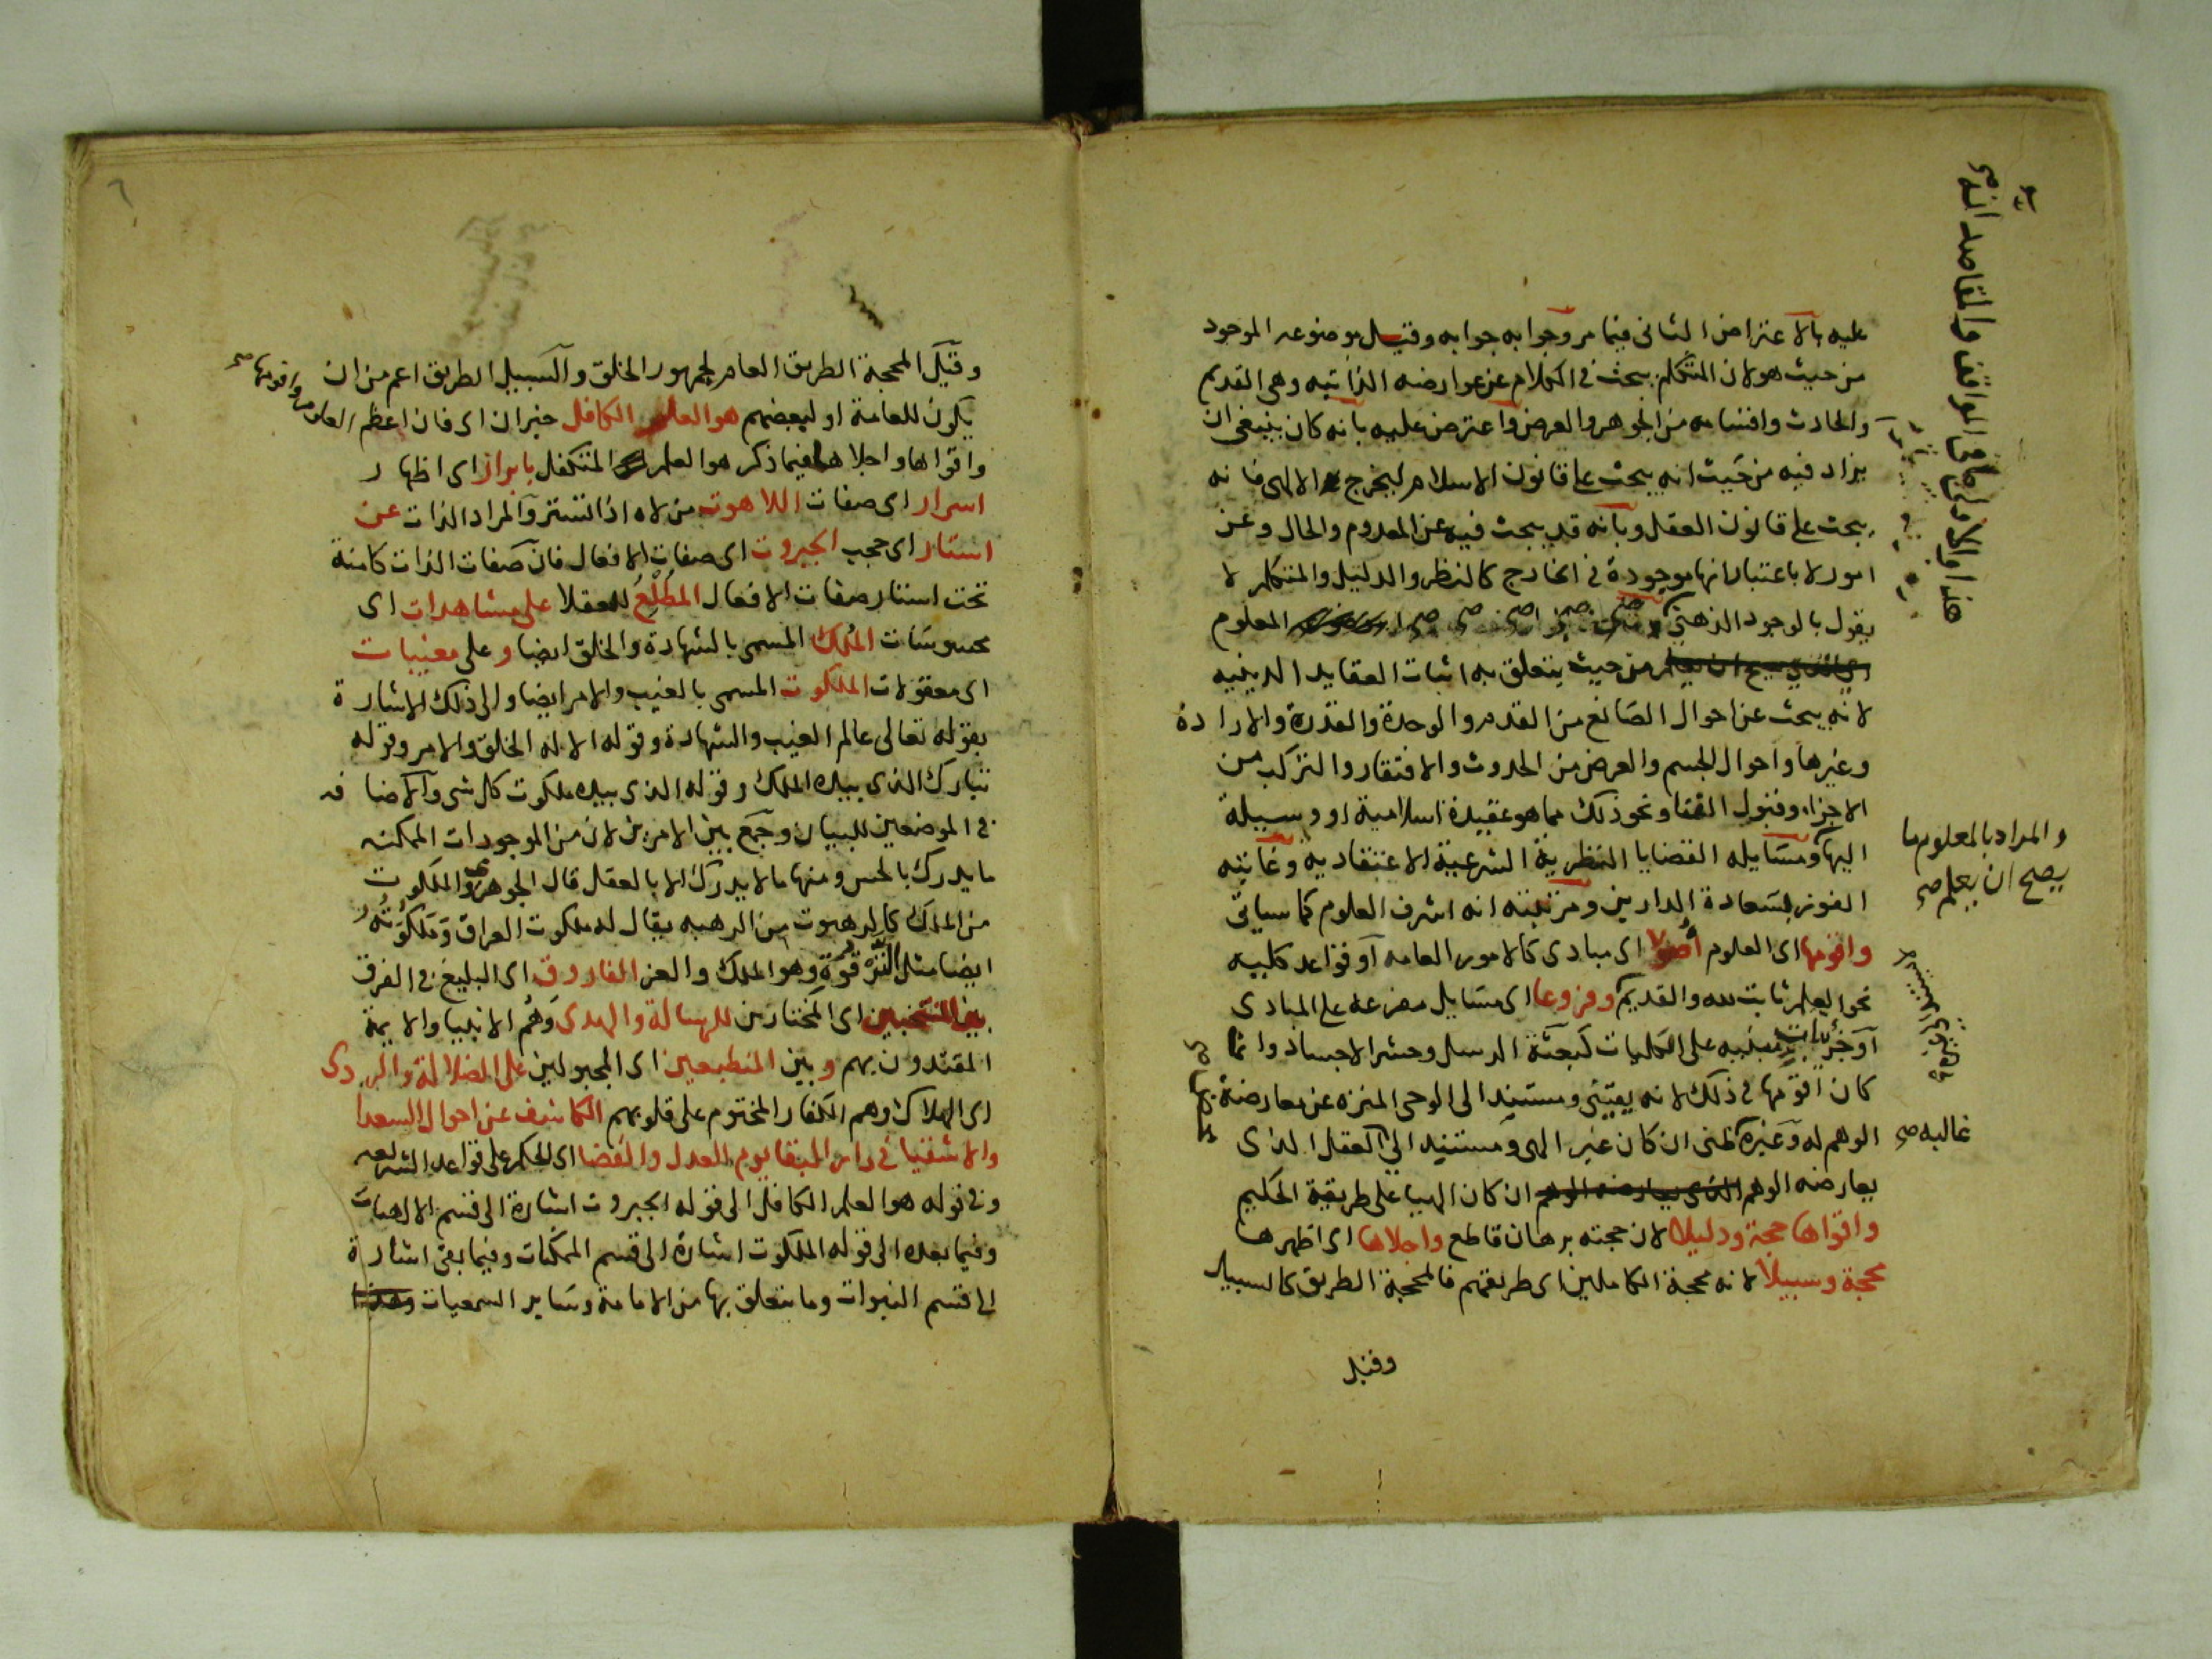 عليه بالاعتراض الثانى فيما مر وجوابه جوابه وقيل موضوعه الموجود
من حيث هو لان المتكلم يبحث فى الكلام عن عوارضه الذاتيه وهى القديم
والحادث واقسامه من الجوهر والعرض واعترض عليه بانه كان ينبغى ان
يزاد فيه من حيث انه يبحث على قانون الاسلام ليخرج الالهى فانه
يبحث على قانون العقل وبانه قد يبحث فيه عن المعدوم والحال وعن
امور لا باعتبار انها موجودة فى الخارج كالنظر والدليل والمتكلم لا
يقول بالوجود الذهنى المعلوم
من حيث يتعلق به اثبات العقايد الدينيه
لانه يبحث عن احوال الصانع من القدم والوحدة والقدرة والارادة
وغيرها واحوال الجسم والعرض من الحدوث والافتقار والتركب من
الاجزاء وقبول الفنا ونحو ذلك مما هو عقيدة اسلامية او وسيلة
اليها ومسايله القضايا النظرية الشرعية الاعتقاديه وغايته
الفوز بسعادة الدارين ومرتبته انه اشرف العلوم كما سياتى
واقومها اى العلوم اصولا اى مبادى كالامور العامه او قواعد كليه
نحو العلم ثابت لله والقديم وفروعا اى مسايل مفرعه على المبادى
او جزئيات مبنيه على الكليات كبعثة الرسل وحشر الاجساد وانما
كان اقومها فى ذلك لانه يقينى ومستند الى الوحى المنزه عن معارضة
الوهم له وغيره ظنى ان كان غير الهى ومستند الى العقل الذى
يعارضه الوهم الذى يعارضه الوهم ان كان الهيا على طريقة الحكيم
واقواها حجة ودليلا لان حجته برهان قاطع واجلاها اى اظهرها
محجة وسبيلا لانه محجة الكاملين اى طريقتهم فالمحجة الطريق كالسبيل
وقيل
والمراد بالمعلوم ما
يصح ان يعلم صح
غالبه صح
وقيل المحجة الطريق العام لجمهور الخلق والسبيل الطريق اعم من ان
يكون للعامة او لبعضهم هو العلم الكافل خبر ان اى فان اعظم العلوم واقومها صح
واقواها واجلاها فيما ذكر هو العلم المتكفل بابراز اى اظهار
اسرار اى صفات اللاهوت من لاه اذا تستر والمراد الذات عن
استار اى حجب الجبروت اى صفات الافعال فان صفات الذات كامنة
تحت استار صفات الافعال المطلع للعقلا على مشاهدات اى
محسوسات الملك المسمى بالشهادة والخلق ايضا وعلى مغيبات
اى معقولات الملكوت المسمى بالغيب والامر ايضا والى ذلك الاشارة
بقوله تعالى عالم الغيب والشهادة وقوله الا له الخلق والامر وقوله
تبارك الذى بيده الملك وقوله الذى بيده ملكوت كل شى والاضافه
فى الموضعين للبيان وجمع بين الامرين لان من الموجودات الممكنه
ما يدرك بالحس ومنها ما لا يدرك الا بالعقل قال الجوهرى والملكوت
من الملك كالرهبوت من الرهبه يقال له ملكوت العراق وملكوته
ايضا مثل الترقوة وهو الملك والعز الفاروق اى البليغ فى الفرق
بين المنتخبين اى المختارين للرسالة والهدى وهم الانبيا والايمة
المقتدون بهم وبين المنطبعين اى المجبولين على الضلالة والردى
اى الهلاك وهم الكفار المختوم على قلوبهم الكاشف عن احوال السعدا
والاشقيا فى دار البقا يوم العدل والقضا اى الحكم على قواعد الشريعه
وفى قوله هو العلم الكافل الى قوله الجبروت اشارة الى قسم الالهيات
وفيما بعده الى قوله الملكوت اشارة الى قسم الممكنات وفيما بقى اشارة
الى قسم النبوات وما يتعلق بها من الامامة وساير السمعيات